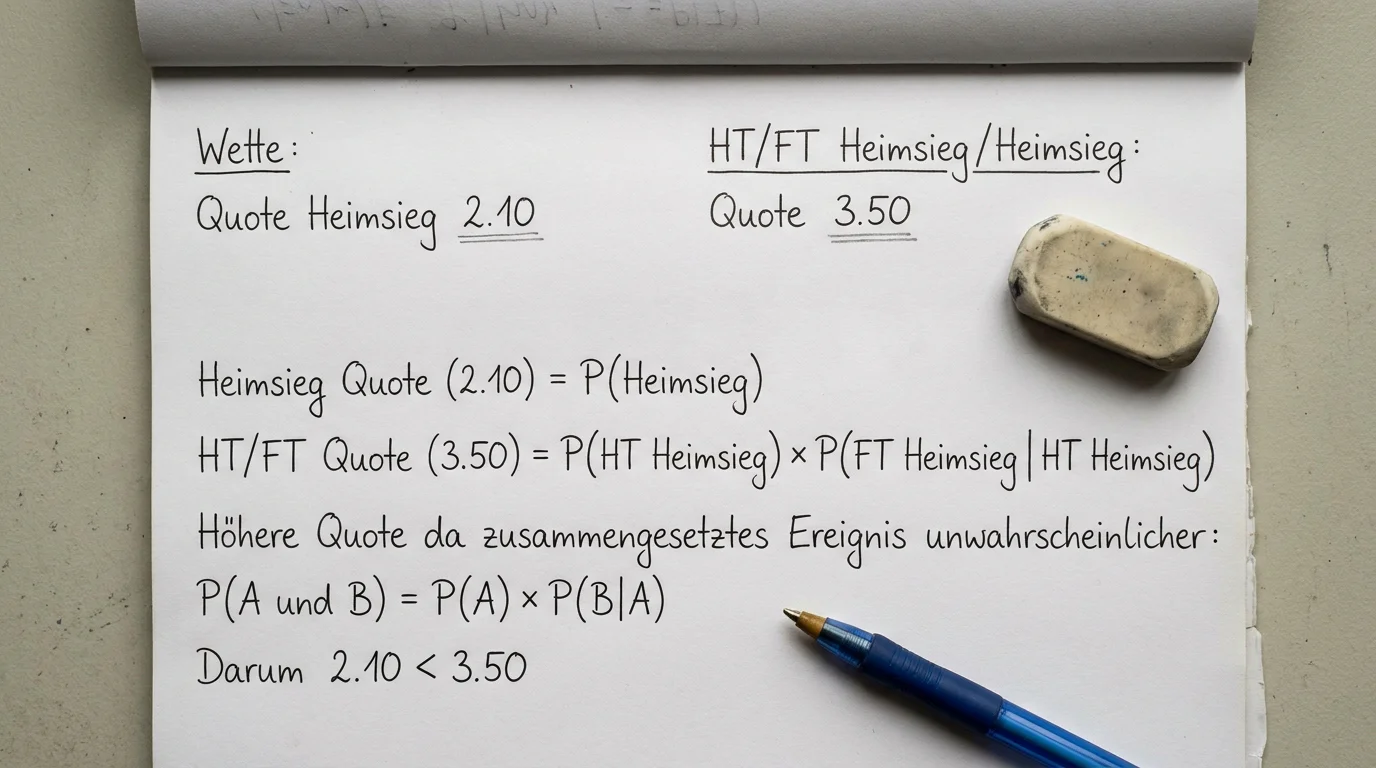 Wette:
Quote Heimsieg 2.10
HT/FT Heimsieg/Heimsieg:
Quote 3.50
Heimsieg Quote (2.10) = P(Heimsieg)
HT/FT Quote (3.50) = P(HT Heimsieg) × P(FT Heimsieg | HT Heimsieg)
Höhere Quote da zusammengesetztes Ereignis unwahrscheinlicher:
P(A und B) = P(A) × P(B|A)
Darum 2.10 < 3.50